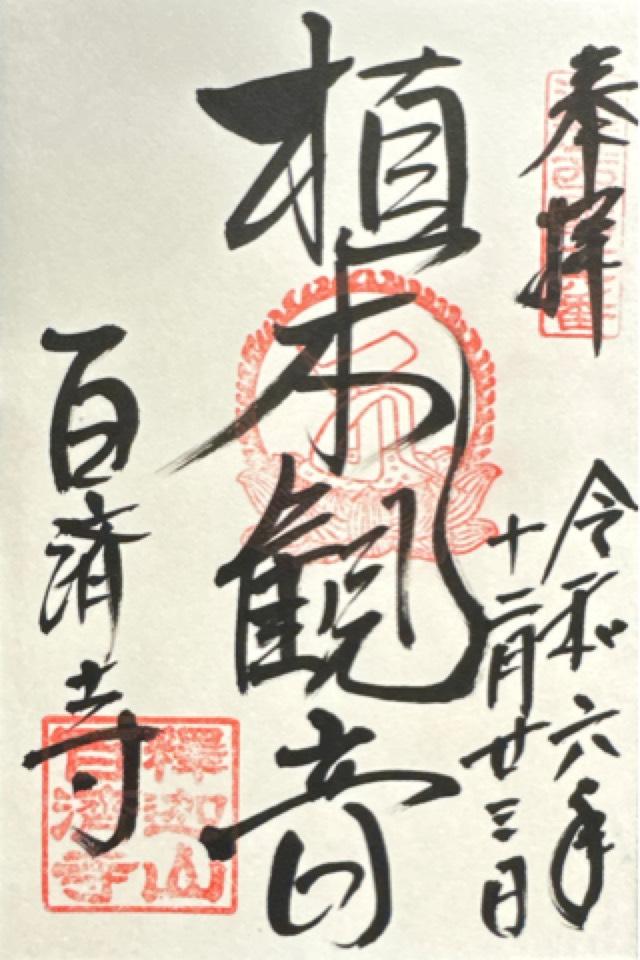 奉拝
令和六年
十二月廿三日
植木観音
百済寺
釋迦山
百濟寺